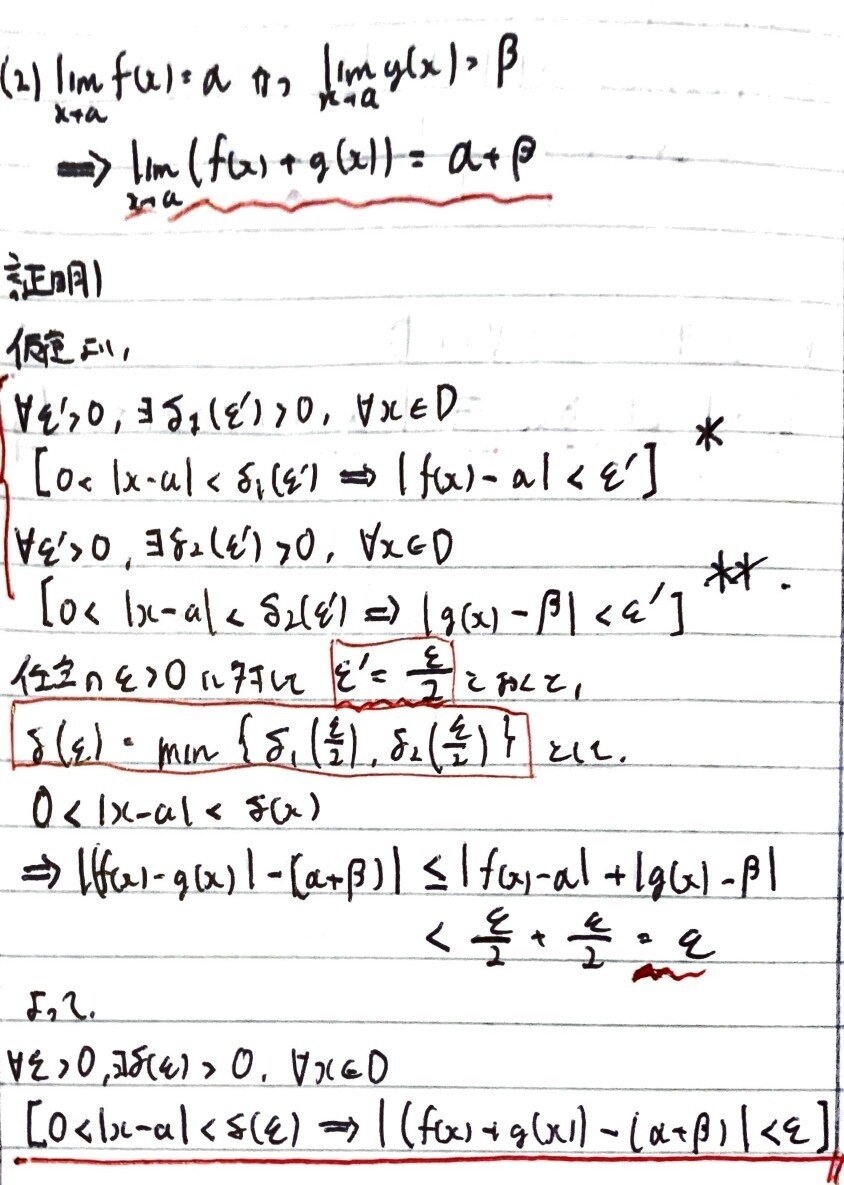 (2) lim f(x) = α かつ lim g(x) = β
x→a x→a
⟹ lim (f(x) + g(x)) = α + β
x→a
証明)
仮定より,
∀ε'>0, ∃δ₁(ε')>0, ∀x∈D
[0< |x-a| < δ₁(ε') ⟹ |f(x) - α| < ε'] *
∀ε'>0, ∃δ₂(ε')>0, ∀x∈D
[0< |x-a| < δ₂(ε') ⟹ |g(x) - β| < ε'] **.
任意の ε>0 に対して ε' = ε/2 とおくと,
δ(ε) = min {δ₁(ε/2), δ₂(ε/2)} として.
0 < |x-a| < δ(x)
⟹ |(f(x) - g(x)) - (α+β)| ≤ |f(x) - α| + |g(x) - β|
< ε/2 + ε/2 = ε
よって.
∀ε>0, ∃δ(ε)>0, ∀x∈D
[0<|x-a|<δ(ε) ⟹ |(f(x) + g(x)) - (α+β)| < ε]